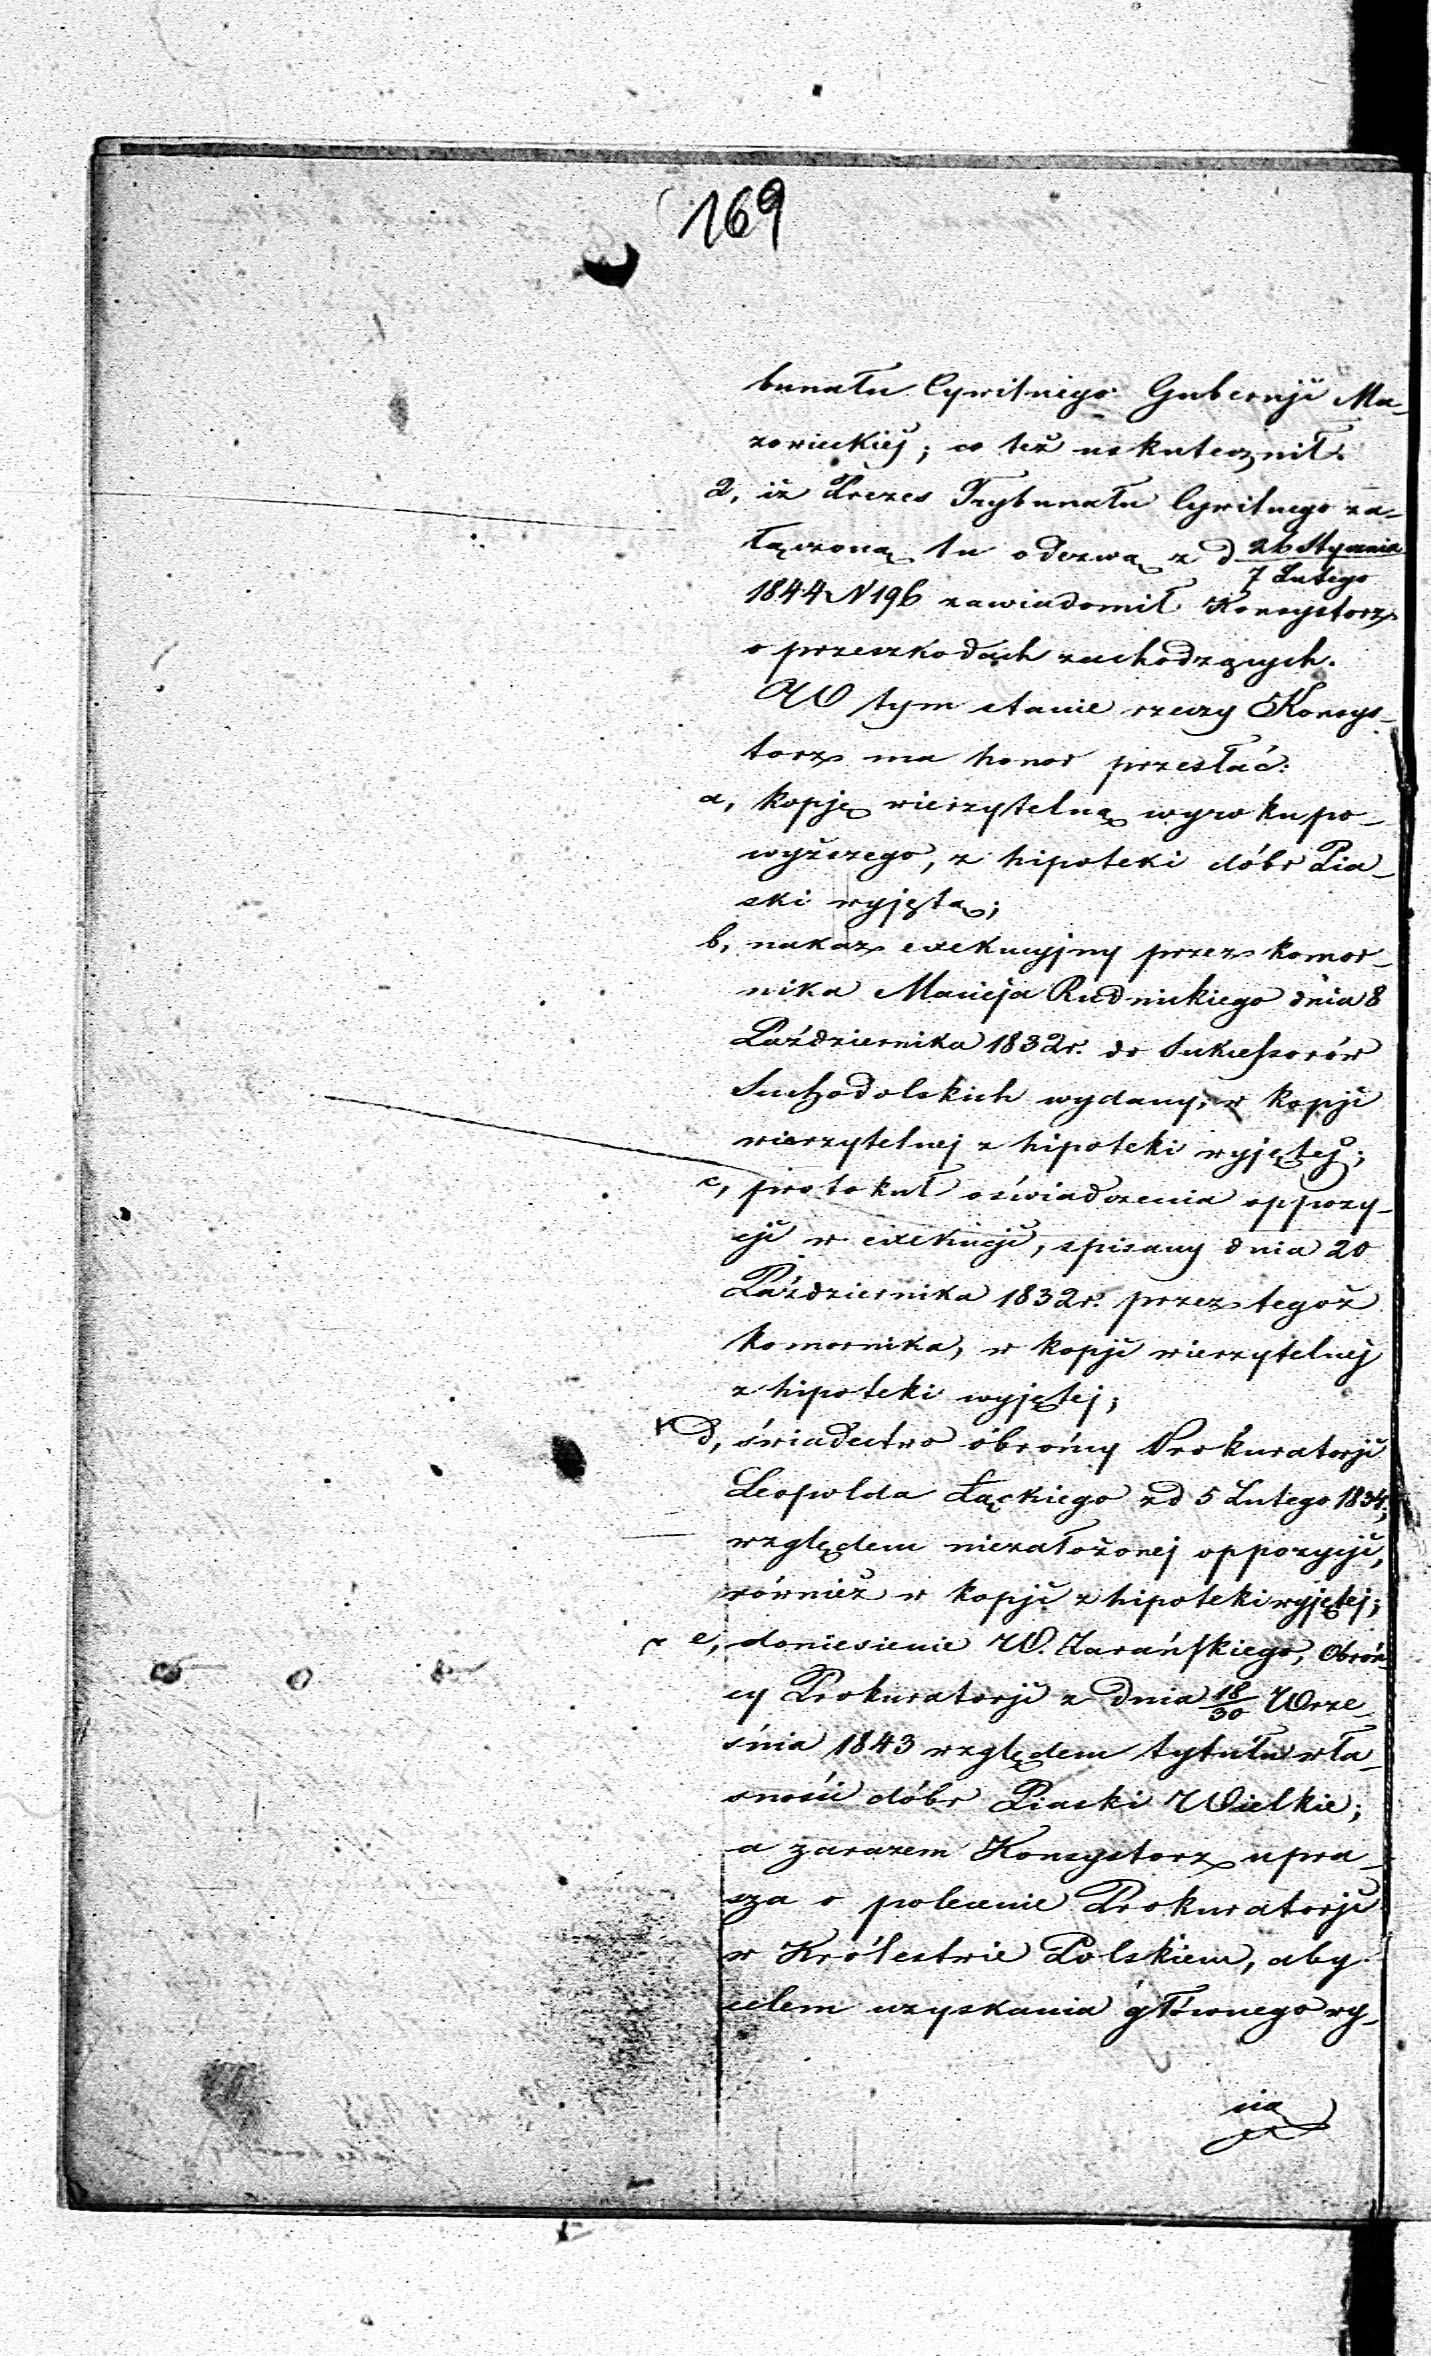 169
bunału Cywilnego Gubernji Ma-
zowieckiéj; co też uskutecznił.
2, iż Prezes Trybunału Cywilnego za-
łączoną tu odezwą z d 26 Stycznia / 7 Lutego
1844 N 196 zawiadomił Konsystorz
o przeszkodach zachodzących.
W tym stanie rzeczy Konsys-
torz ma honor przesłać:
a, kopję wierzytelną wyroku po-
wyższego, z hipoteki dóbr Pia-
ski wyjętą;
b, nakaz exekucyjny przez komor-
nika Macieja Rudnickiego dnia 8
Października 1832r. do Sukcessorów
Suchodolskich wydany, w kopji
wierzytelnej z hipoteki wyjętej;
c, protokuł oświadczenia oppozy-
cji w exekucji, spisany dnia 20
Października 1832r. przez tegoż
komornika, w kopji wierzytelnej
z hipoteki wyjętej;
d, świadectwo obrońcy Prokuratorji
Leopolda Łąckiego z d 5 Lutego 1834.,
względem niezałożonej oppozycji,
również w kopji z hipoteki wyjętej;
e, doniesienie W. Zarańskiego, Obroń-
cy Prokuratorji z dnia 18/30 Wrze-
śnia 1843 względem tytułu wła-
sności dóbr Piaski Wielkie;
a zarazem Konsystorz upra-
sza o polecenie Prokuratorji
w Królestwie Polskiem, aby
celem uzyskania głównego wy-